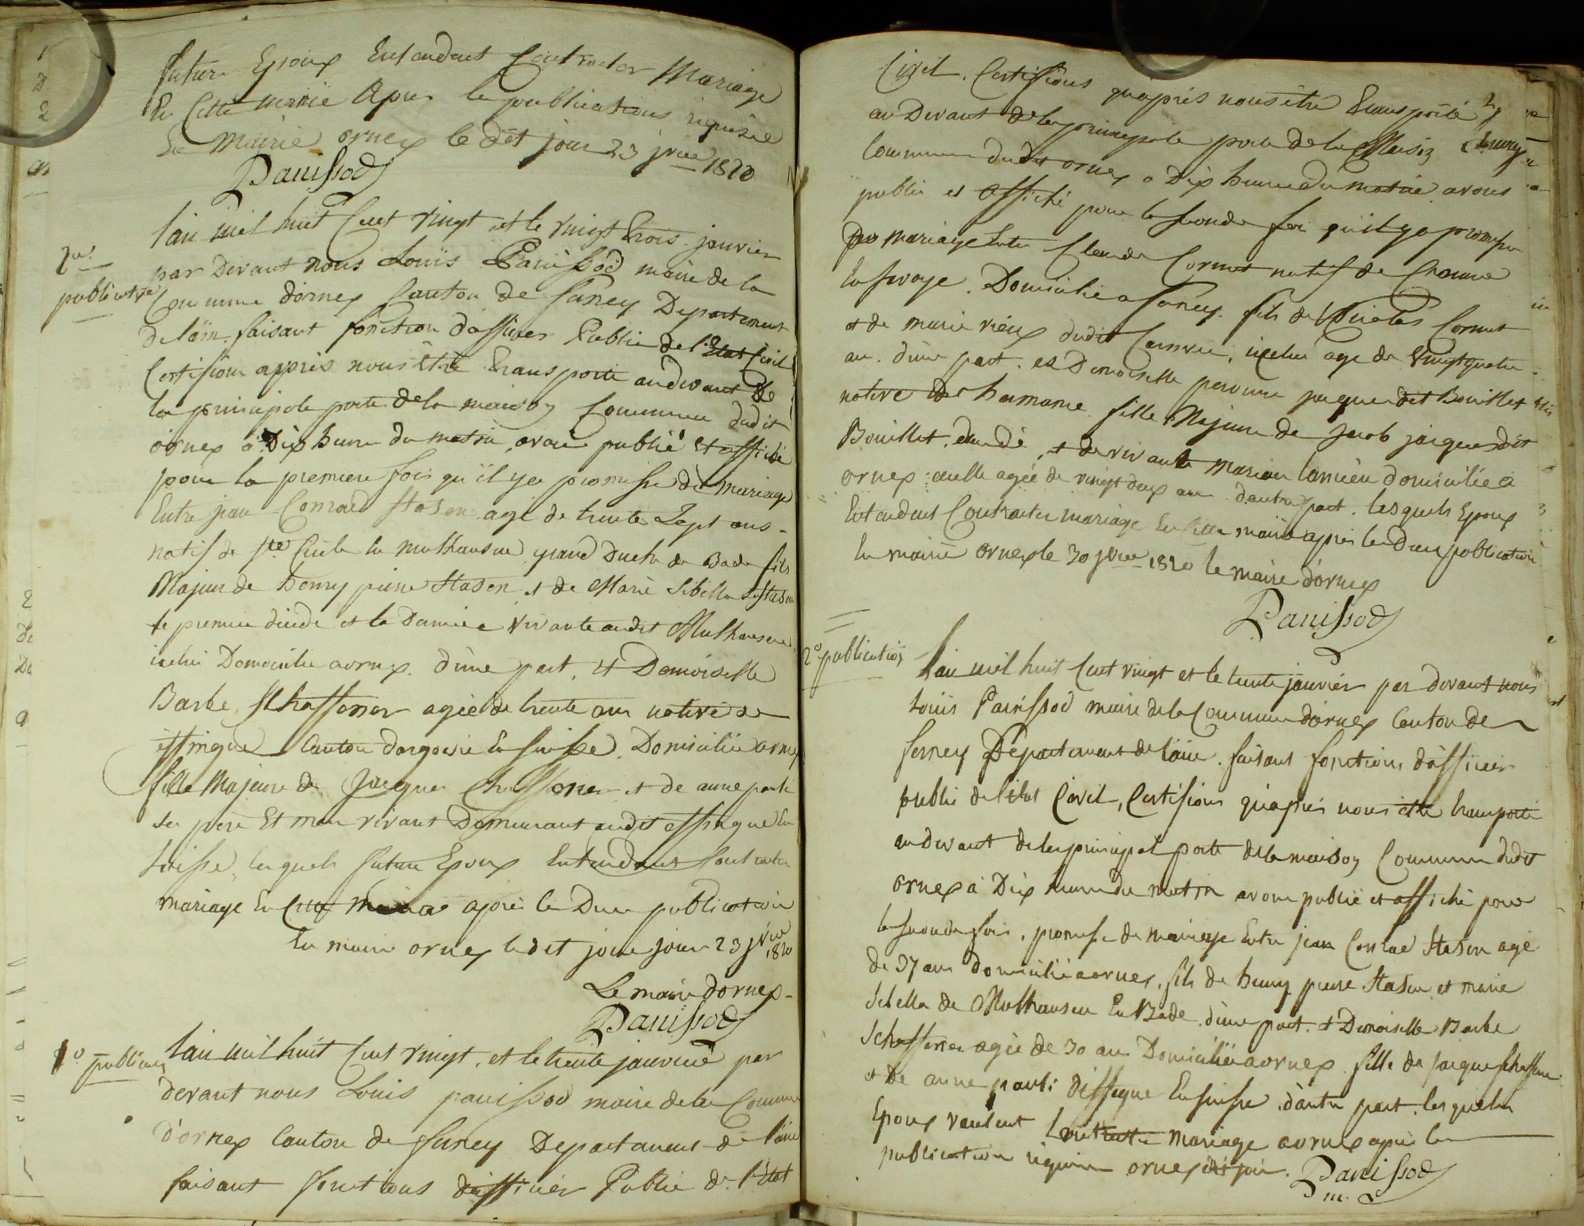 futurs Epoux Entendent Contracter Mariage
En Cette mairie Apres le publications requise
En Mairie ornex le dit jour 23 jvier 1820
Panissod
1er
publication
L'an mil huit Cent vingt et le vingt trois janvier
par Devant nous Louis Panissod maire de la
Commune d'ornex Canton de ferney Departement
de l'ain faisant fonction d'officier Public de l'Etat Civil
Certifions apprés nous être transporté au devant de
la principale porte de la maison Commune dudit
ornex à Dix heure du matin, avoir publié et affiché
pour la premiere fois qu'il y a promesse de mariage
Entre jean Conrad Hason agé de trente Sept ans
natif de Mulhausen grand Duché de Bade fils
Majeur de henry pierre Hason et de Marie Sibella Hason
le premier décédé et la Derniere vivante audit Mulhausen
icelui Domicilié a ornex d'une part, et Demoiselle
Barbe Schaffoner agée de trente ans native de
effingue Canton d'argovie En Suisse. Domiciliée a ornex
fille Majeure de Jacques Chaffoner et de anne pauli
ses pere Et mere vivant Demeurant audit effingue En
Suisse, lesquels futurs Epoux Entendent Contracter
mariage En Cette Mairie apres le Dues publication
En mairie ornex le dit jour jour 23 jvier
1820
Le maire d'ornex
Panissod
1o publication
L'an mil huit Cent vingt, et le trente janvier par
devant nous Louis panissod maire de la Commune
D'ornex Canton de ferney Departement de l'ain
faisant fonctions d'officier Public de l'Etat
Civil. Certifions qu'aprés nous être transporté
au Devant de la principale porte de la Maison Commune
Commune dudit ornex a Dix heure du matin avons
publié et affiché pour la seconde foi qu'il y a promesse
De mariage Entre Claude Cornut natif de
En savoye. Domicilié a ferney. fils de Nicolas Cornut
et de marie vieux dudit icelui agé de vingt quatre
an. d'une part. et Demoiselle pervine jaques dit Bouillet
native de hermance fille Majeure de Jacob jacques dit
Bouillet. décédé, et de vivante Marion domiciliée à
ornex. icelle agée de vingt deux an d'autre part. lesquels Epoux
Entendent Contracter mariage En Cette mairie apres les Dues publication
En mairie ornex le 30 jvier 1820 le maire d'ornex
Panissod
2o publication
L'an mil huit Cent vingt et le trente janvier par devant nous
Louis Panissod maire de la Commune d'ornex Canton de
ferney Département de l'ain. faisant fonctions d'officier
public de l'état Civil, Certifions qu'aprés nous être transporté
au devant de la principal porte de la maison Commune dudit
ornex à Dix heure du matin avons publié et affiché pour
la seconde fois, promesse de mariage Entre jean Conrad Hason agé
de 37 ans domicilié a ornex, fils de henry pierre Hason et marie
Sibella de Mulhausen En Bade. d'une part. et Demoiselle Barbe
Schaffoner agée de 30 ans Domiciliée a ornex fille de Jacque Schaffoner
et De anne pauli D'effegue En suisse, d'autre part. lesquels
Epoux veulent Contracter mariage a ornex apres la
publication requise ornex dit jour. Panissod
m.